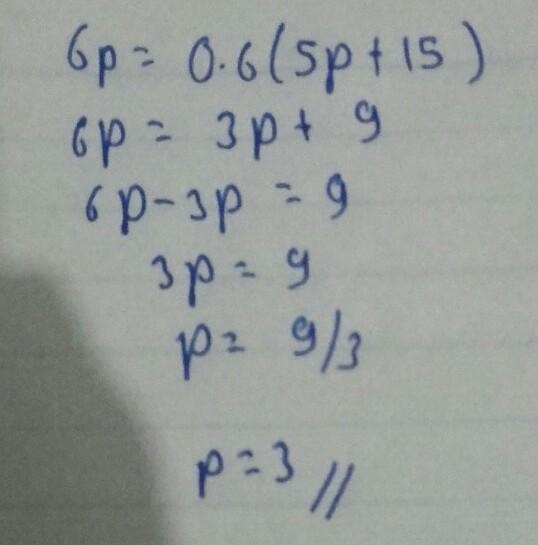 6p = 0.6(5p+15)
6p = 3p + 9
6p-3p = 9
3p = 9
p = 9/3
p = 3 //